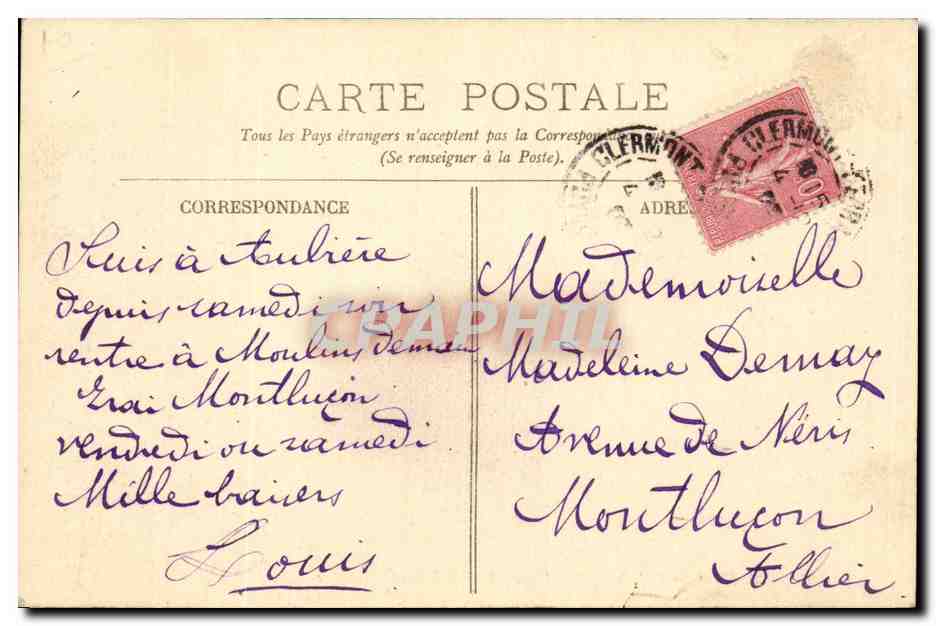 CARTE POSTALE
Tous les Pays étrangers n'acceptent pas la
(Se renseigner à la Poste).
CORRESPONDANCE
Suis à Aubière
depuis samedi soir
rentre à Moulins demain
Irai Montluçon
vendredi ou samedi
Mille baisers
Louis
CLERMONT
CLERMONT
10
Mademoiselle
Madeleine Demay
Avenue de Néris
Montluçon
Allier
CPAPHIL